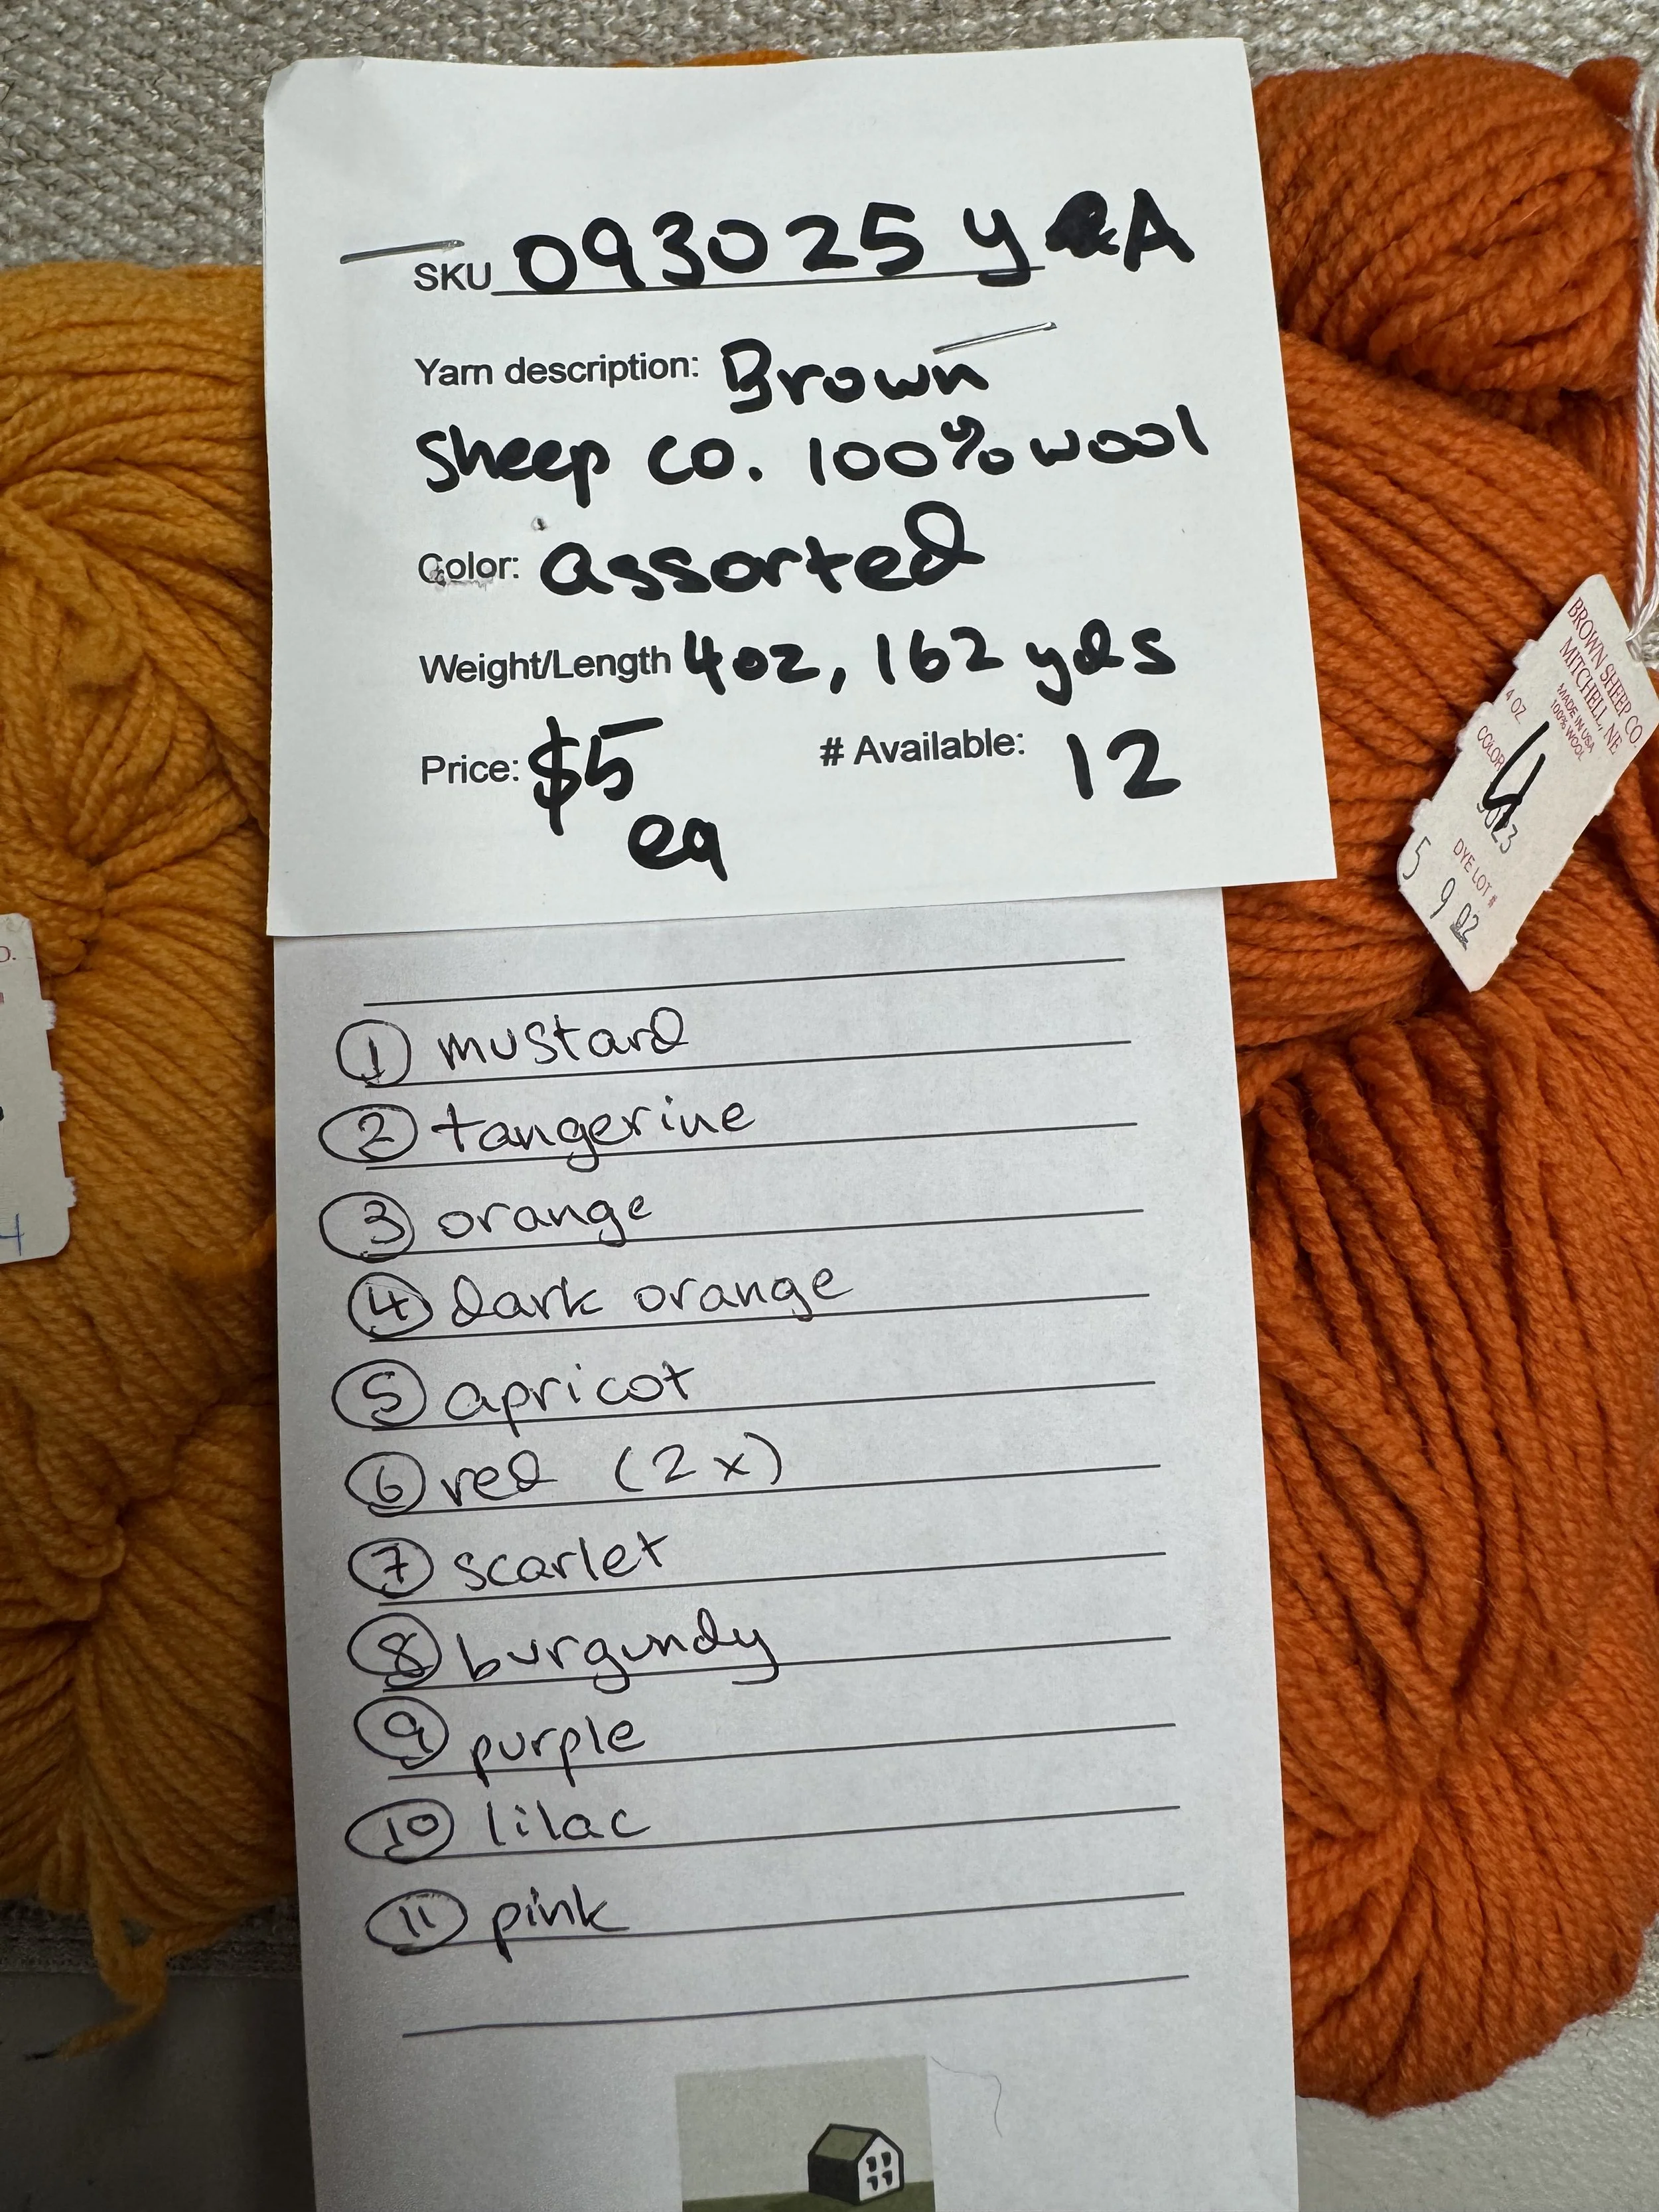 SKU 093025 y A
Yarn description: Brown
Sheep Co. 100% wool
Color: assorted
Weight/Length 4oz, 162 yds
Price: $5 # Available: 12
ea
1 mustard
2 tangerine
3 orange
4 dark orange
5 apricot
6 red (2x)
7 scarlet
8 burgundy
9 purple
10 lilac
11 pink
BROWN SHEEP CO.
MITCHELL, NE
MADE IN USA
100% WOOL
4 OZ
COLOR
4
DYE LOT #
5 9 02
4